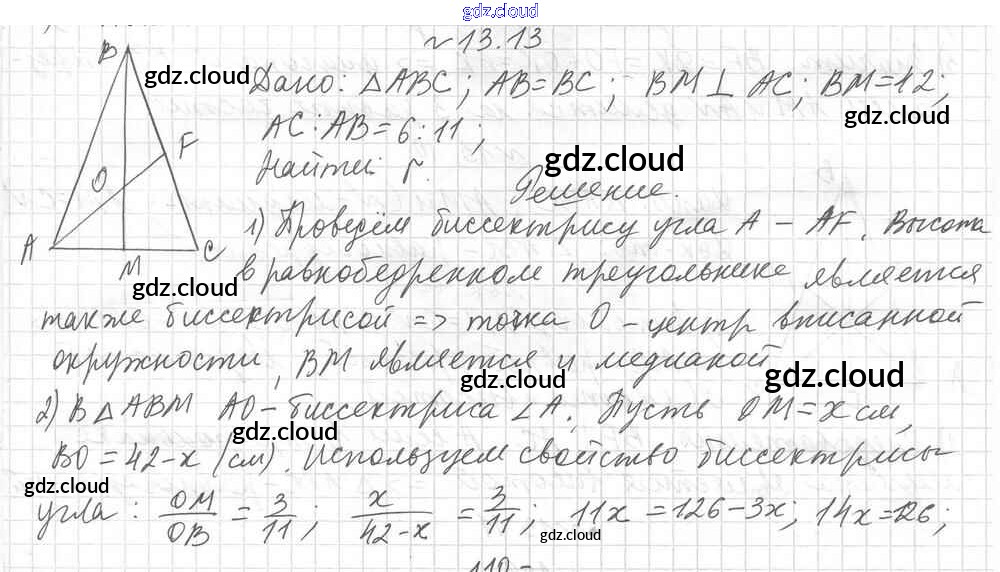 gdz.cloud
№ 13.13
B gdz.cloud
Дано: △ABC; AB=BC; BM⊥AC; BM=12;
gdz.cloud
AC:AB=6:11;
F gdz.cloud
Найти: r.
O Решение.
gdz.cloud
1) Проведём биссектрису угла A – AF. Высота
A M C gdz.cloud
gdz.cloud
в равнобедренном треугольнике является
также биссектрисой => точка O – центр вписанной
окружности, BM является и медианой
gdz.cloud gdz.cloud
2) В △ABM AO – биссектриса ∠A. Пусть OM = x см,
gdz.cloud
BO = 42-x (см). Используем свойство биссектрисы
gdz.cloud gdz.cloud
угла: OM/OB = 3/11; x/(42-x) = 3/11; 11x = 126-3x; 14x=126;
gdz.cloud